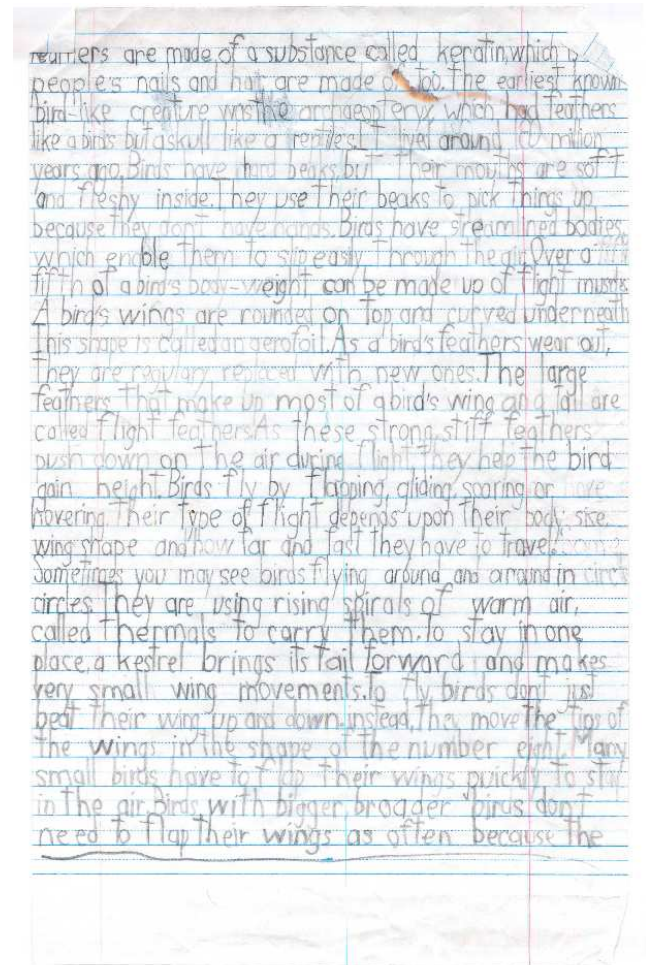 feathers are made of a substance called keratin, which
people's nails and hair are made of too. The earliest known
bird-like creature was the archaeopteryx, which had feathers
like a birds but a skull like a reptile's. It lived around million
years ago. Birds have hard beaks, but their mouths are soft
and fleshy inside. They use their beaks to pick things up
because they don't have hands. Birds have streamlined bodies,
which enable them to slip easily through the air. Over a
fifth of a bird's body-weight can be made up of flight muscles.
A bird's wings are rounded on top and curved underneath
This shape is called an aerofoil. As a bird's feathers wear out,
they are regulary replaced with new ones. The large
feathers that make up most of a bird's wing and tail are
called flight feathers. As these strong, stiff feathers
push down on the air during flight they help the bird
gain height. Birds fly by flapping, gliding, soaring or
hovering. Their type of flight depends upon their body size,
wing shape and how far and fast they have to travel.
Sometimes you may see birds flying around and around in circle
circles. They are using rising spirals of warm air,
called thermals to carry them. To stay in one
place, a kestrel brings its tail forward and makes
very small wing movements. To fly, birds don't just
beat their wing up and down-instead, they move the tips of
the wings in the shape of the number eight. Many
small birds have to flap their wings quickly to stay
in the air. Birds with bigger, broader birds don't
need to flap their wings as often because the